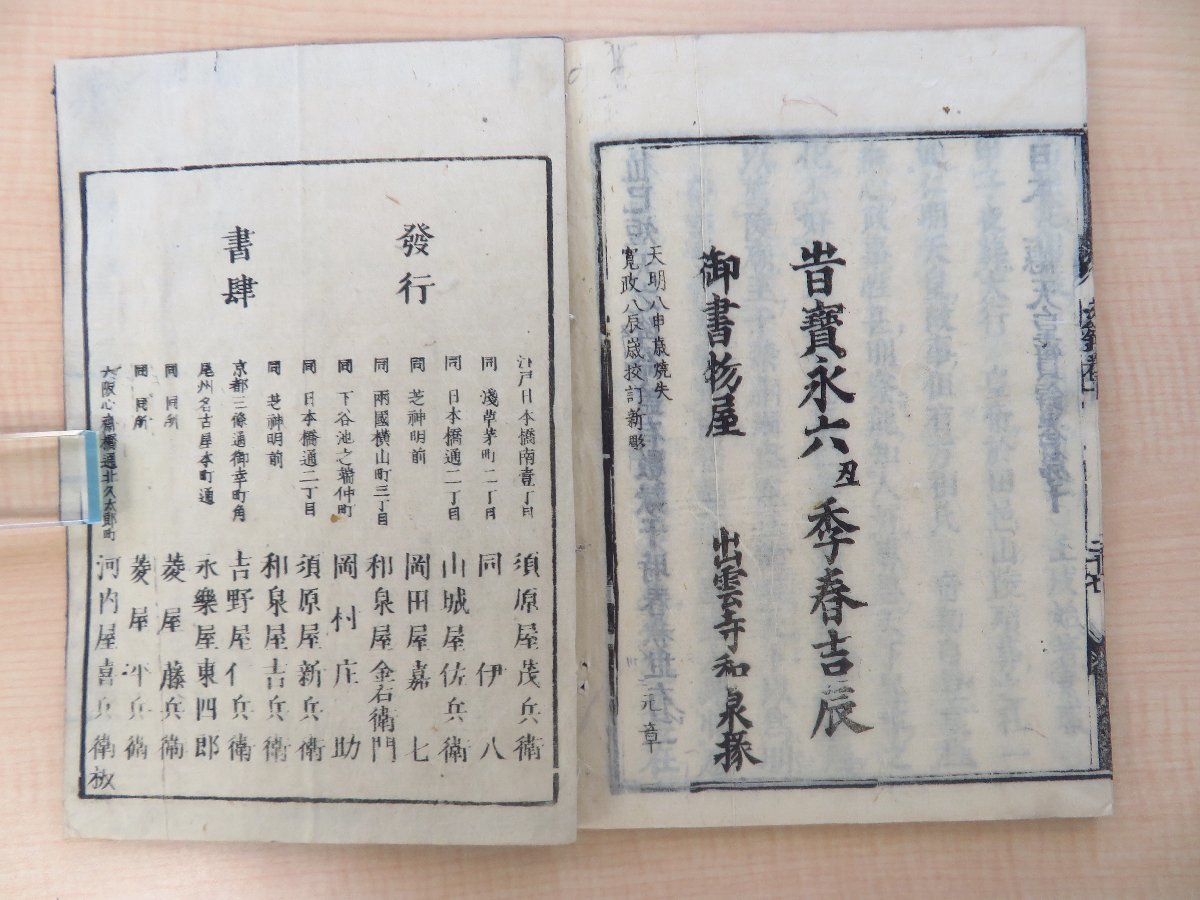 旹寶永六丑季春吉辰
御書物屋 出雲寺和泉掾
天明八申歳焼失
寛政八辰歳挍訂新彫
元章
發行
書肆
江戸日本橋南壹丁目 須原屋茂兵衛
同 淺草茅町二丁目 同 伊八
同 日本橋通二丁目 山城屋佐兵衛
同 芝神明前 岡田屋嘉七
同 兩國横山町三丁目 和泉屋金右衛門
同 下谷池之端仲町 岡村庄助
同 日本橋通二丁目 須原屋新兵衛
同 芝神明前 和泉屋吉兵衛
京都三條通御幸町角 吉野屋仁兵衛
尾州名古屋本町通 永樂屋東四郎
同 同所 菱屋藤兵衛
同 同所 菱屋平兵衛
大阪心齋橋通北久太郎町 河内屋喜兵衛板